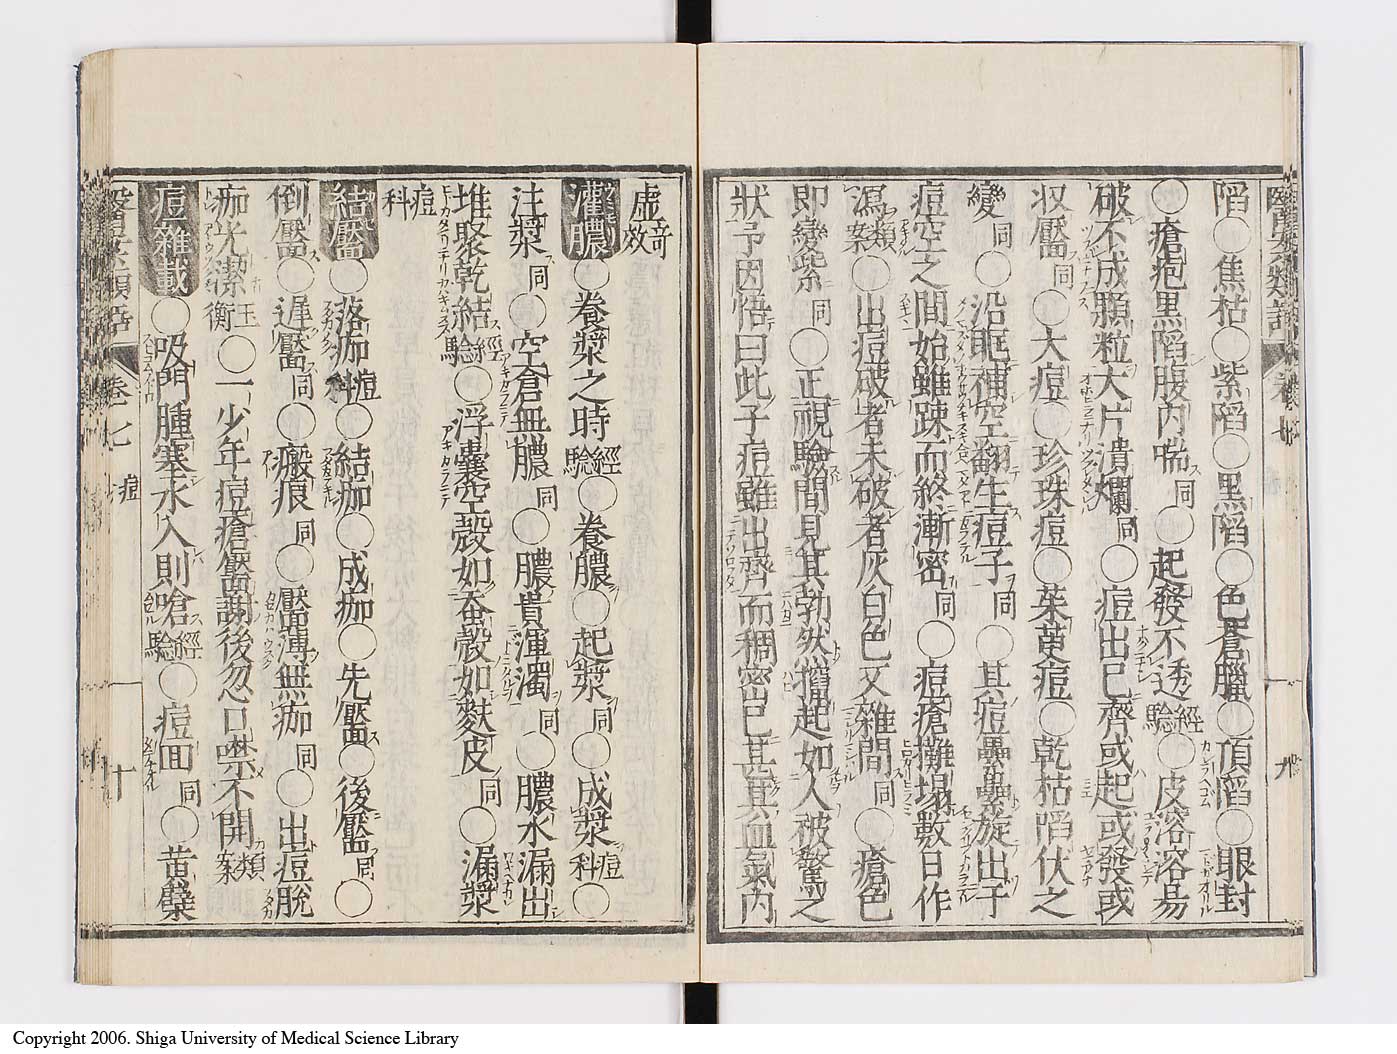 陷○焦枯○紫陷○黒陷○色蒼臘○頂陷○眼封
○瘡疱黒陷腹内喘同○起發不透經驗○皮溶溶易
破不成顆粒大片潰爛同○痘出已齊或起或發或
收靨同○大痘○珍珠痘○茱萸痘○乾枯陷伏之
變同○沿眶補空翻生痘子同○其痘纍纍旋出于
痘空之間始雖踈而終漸密同○痘瘡攤塌數日作
瀉類案○出痘破者未破者灰白色又雜間同○瘡色
即變紫同○正視驗間見其勃然攛起如人被驚之
狀予因悟曰此子痘雖出齊而稠密已甚其血氣内
醫 類 卷七 九
虚奇效
灌膿○養漿之時經驗○養膿○起漿同○成漿痘科○
注漿同○空倉無膿同○膿貴渾濁同○膿水漏出
堆聚乾結經驗○浮囊空殼如蚕殼如麩皮同○漏漿
痘科
結靨○落痂痘科○結痂○成痂○先靨○後靨同○
倒靨○遲靨同○瘢痕同○靨薄無痂同○出痘脫
痂光潔玉衡○一少年痘瘡靨謝後忽口噤不開類案
痘雜載○吸門腫塞水入則嗆經驗○痘面同○黄蘗
卷七 痘 十
Copyright 2006. Shiga University of Medical Science Library